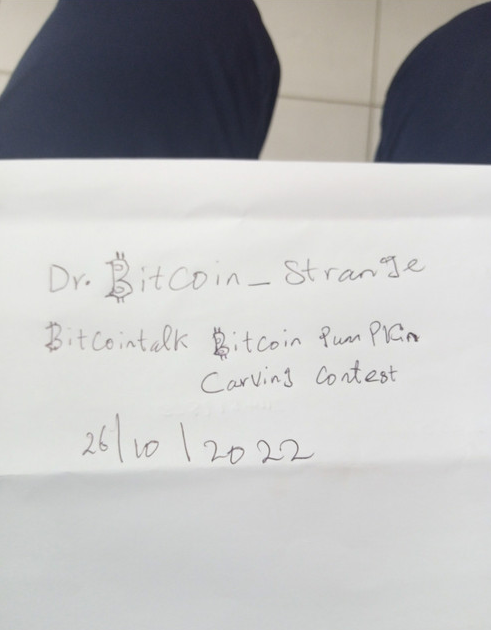 Dr. Bitcoin_Strange
Bitcointalk Bitcoin PumPKin
Carving Contest
26/10/2022